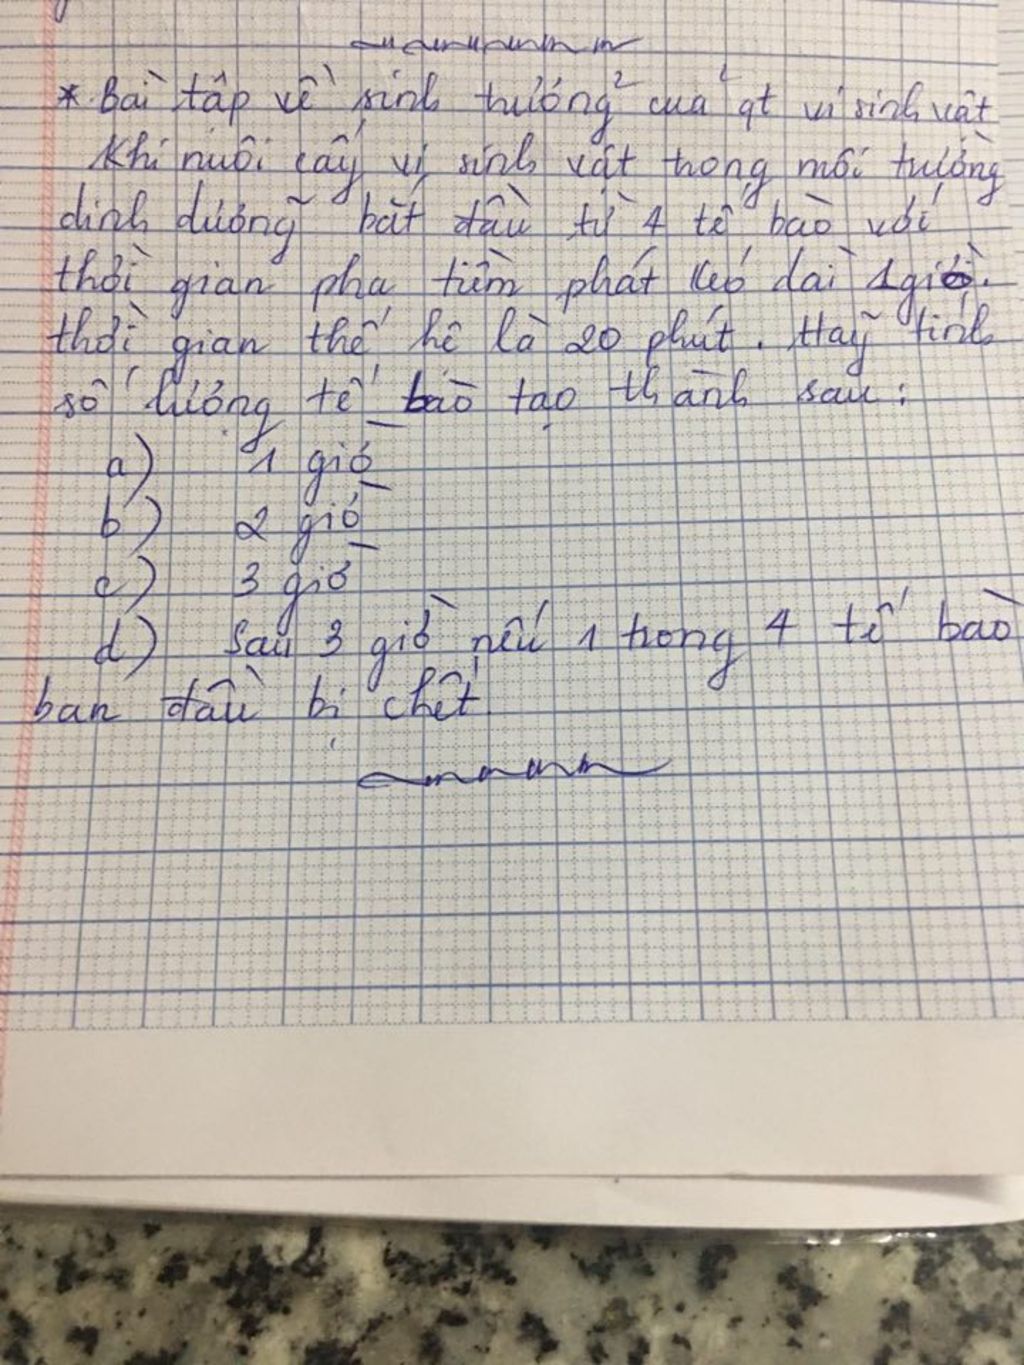 * Bài tập về sinh trưởng của qt vi sinh vật
Khi nuôi cấy vi sinh vật trong môi trường
dinh dưỡng bắt đầu từ 4 tế bào với
thời gian pha tiềm phát kéo dài 1 giờ.
thời gian thế hệ là 20 phút. Hãy tính
số lượng tế bào tạo thành sau:
a) 1 giờ
b) 2 giờ
c) 3 giờ
d) Sau 3 giờ nếu 1 trong 4 tế bào
ban đầu bị chết